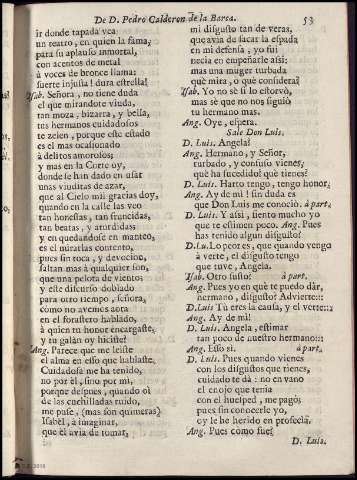 De D. Pedro Calderon de la Barca. 53
ir donde tapada vea
un teatro, en quien la fama,
para su aplauso inmortal,
con acentos de metal
à voces de bronce llama:
fuerte injusta! dura estrella!
Isab. Señora, no tiene duda
el que mirandote viuda,
tan moza, bizarra, y bella,
tus hermanos cuidadosos
te zelen, porque este estado
es el mas ocasionado
à delitos amorosos;
y mas en la Corte oy,
donde se han dado en usar
unas viuditas de azar,
que al Cielo mil gracias doy,
quando en la calle las veo
tan honestas, tan fruncidas,
tan beatas, y aturdidas;
y en quedandose en manteo,
es el mirarlas contento,
pues sin toca, y devocion,
saltan mas à qualquier son,
que una pelota de viento;
y este discurso doblado
para otro tiempo, señora,
còmo no avemos aora
en el forastero hablado,
à quien tu honor encargaste,
y tu galàn oy hiciste?
Ang. Parece que me leiste
el alma en esso que hablaste.
Cuidadosa me ha tenido,
no por èl, sino por mi,
porque despues, quando oì
de las cuchilladas ruido,
me puse, (mas son quimeras)
Isabel, à imaginar,
que èl avia de tomar,
mi disgusto tan de veras,
que avia de sacar la espada
en mi defensa, yo fui
necia en empeñarle assi:
mas una muger turbada
què mira, o què considera?
Isab. Yo no sè si lo estorvò,
mas sè que no nos siguiò
tu hermano mas.
Ang. Oye, espera.
Sale Don Luis.
D. Luis. Angela!
Ang. Hermano, y Señor,
turbado, y confuso vienes;
què ha sucedido? què tienes?
D. Luis. Harto tengo, tengo honor.
Ang. Ay de mi! sin duda es
que Don Luis me conociò. à part.
D. Luis. Y assi, siento mucho yo
que te estimen poco. Ang. Pues
has tenido algun disgusto?
D. Lu. Lo peor es, que quando vengo
à verte, el disgusto tengo
que tuve, Angela.
Isab. Otro susto? à part.
Ang. Pues yo en què te puedo dàr,
hermano, disgusto? Advierte:::
D. Luis Tù eres la causa, y el verte:::
Ang. Ay de mi!
D. Luis. Angela, estimar
tan poco de nuestro hermano:::
Ang. Esso sì. à part.
D. Luis. Pues quando vienes
con los disgustos que tienes,
cuidado te dà: no en vano
el enojo que tenia
con el huesped, me pagò;
pues sin conocerle yo,
oy le he herido en profecìa.
Ang. Pues còmo fue?
D. Luis.